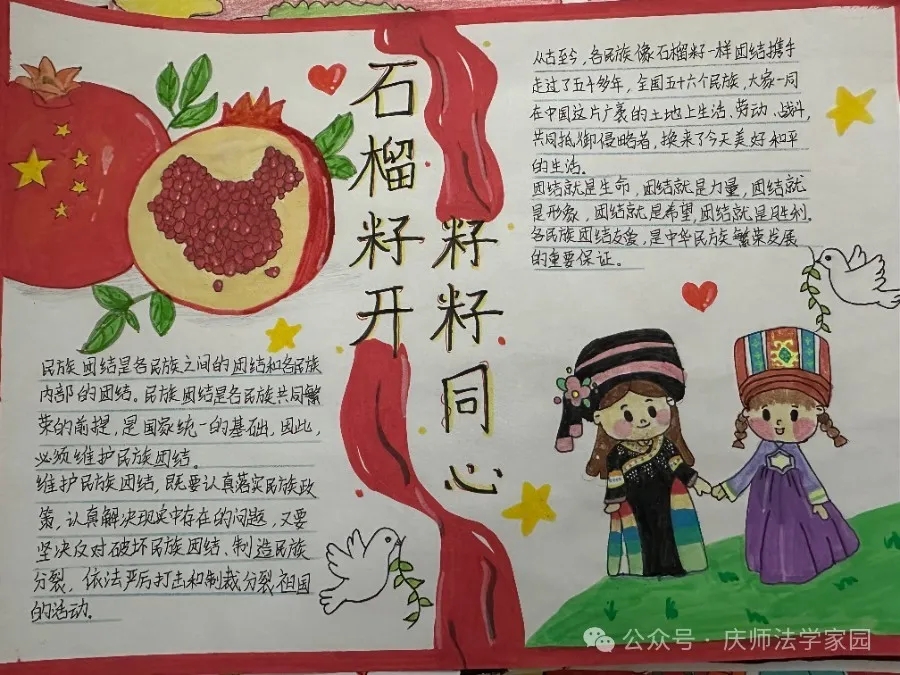 石榴籽开
籽籽同心
从古至今，各民族像石榴籽一样团结携手
走过了五十多年，全国五十六个民族，大家一同
在中国这片广袤的土地上生活、劳动、战斗，
共同抵御侵略者，换来了今天美好和平
的生活。
团结就是生命，团结就是力量，团结就
是形象，团结就是希望，团结就是胜利。
各民族团结友爱，是中华民族繁荣发展
的重要保证。
民族团结是各民族之间的团结和各民族
内部的团结。民族团结是各民族共同繁
荣的前提，是国家统一的基础，因此，
必须维护民族团结。
维护民族团结，既要认真落实民族政
策，认真解决现实中存在的问题，又要
坚决反对破坏民族团结、制造民族
分裂，依法严厉打击和制裁分裂祖国
的活动。
公众号·庆师法学家园